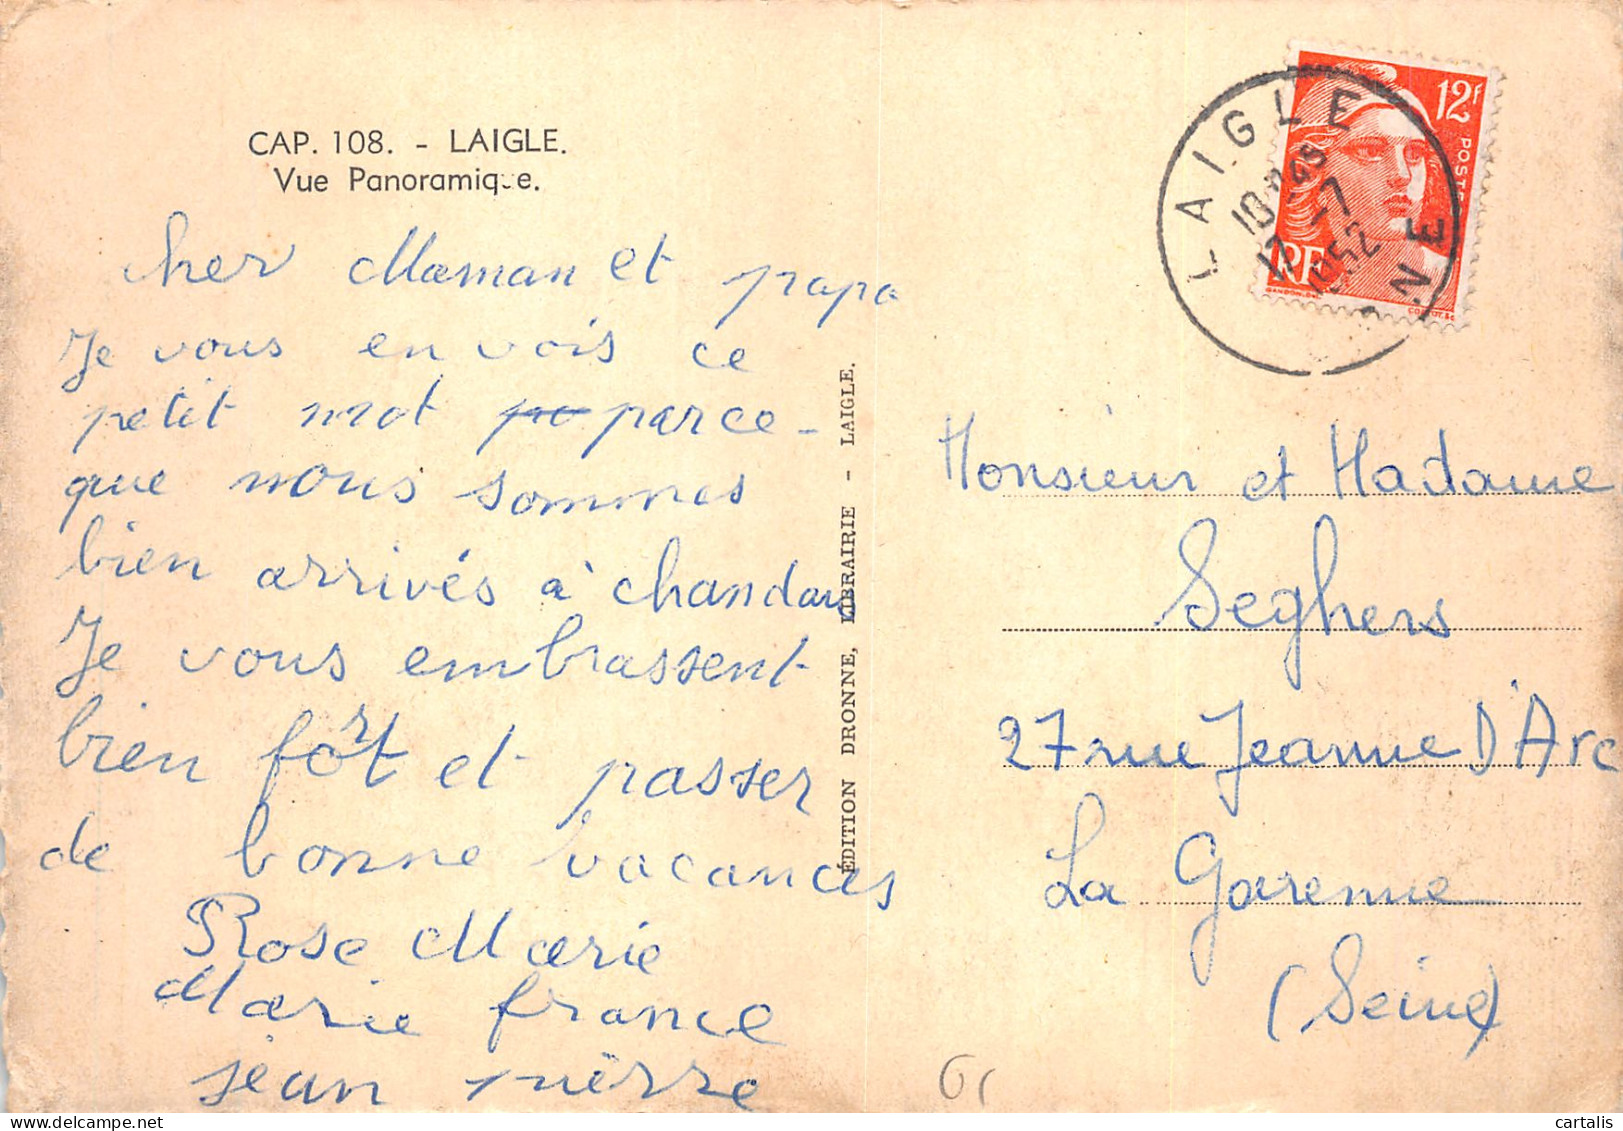 CAP. 108. - LAIGLE.
Vue Panoramique.
cher Maman et papa
Je vous en vois ce
petit mot po parce-
que nous sommes
bien arrivés à chandai
Je vous embrassent
bien fort et passer
de bonne vacances
Rose Marie
Marie france
jean pierre
ÉDITION DRONNE, LIBRAIRIE - LAIGLE.
LAIGLE
10H45
12-7
1952
NE
12f
POSTES
RF
GANDON
Monsieur et Madame
Seghers
27 rue Jeanne D'Arc
La Garenne
(Seine)
cartalis